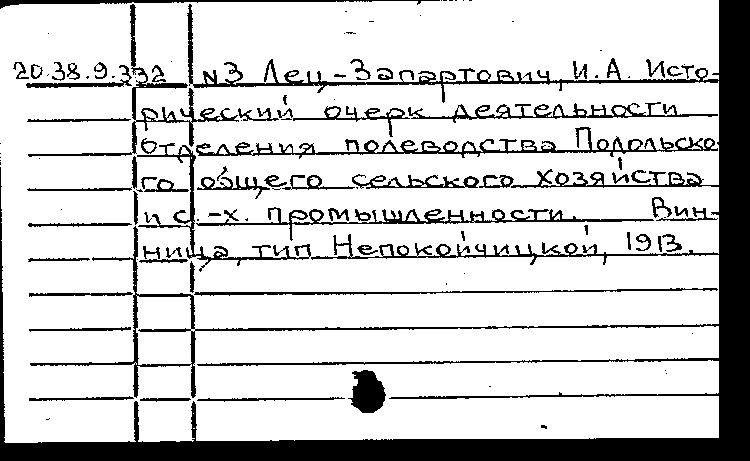 20.38.9.332 N3 Лец-Запартович, И.А. Исто-
рический очерк деятельности
отделения полеводства Подольско-
го общего сельского хозяйства
и с.-х. промышленности. Вин-
ница, тип. Непокойчицкой, 1913.